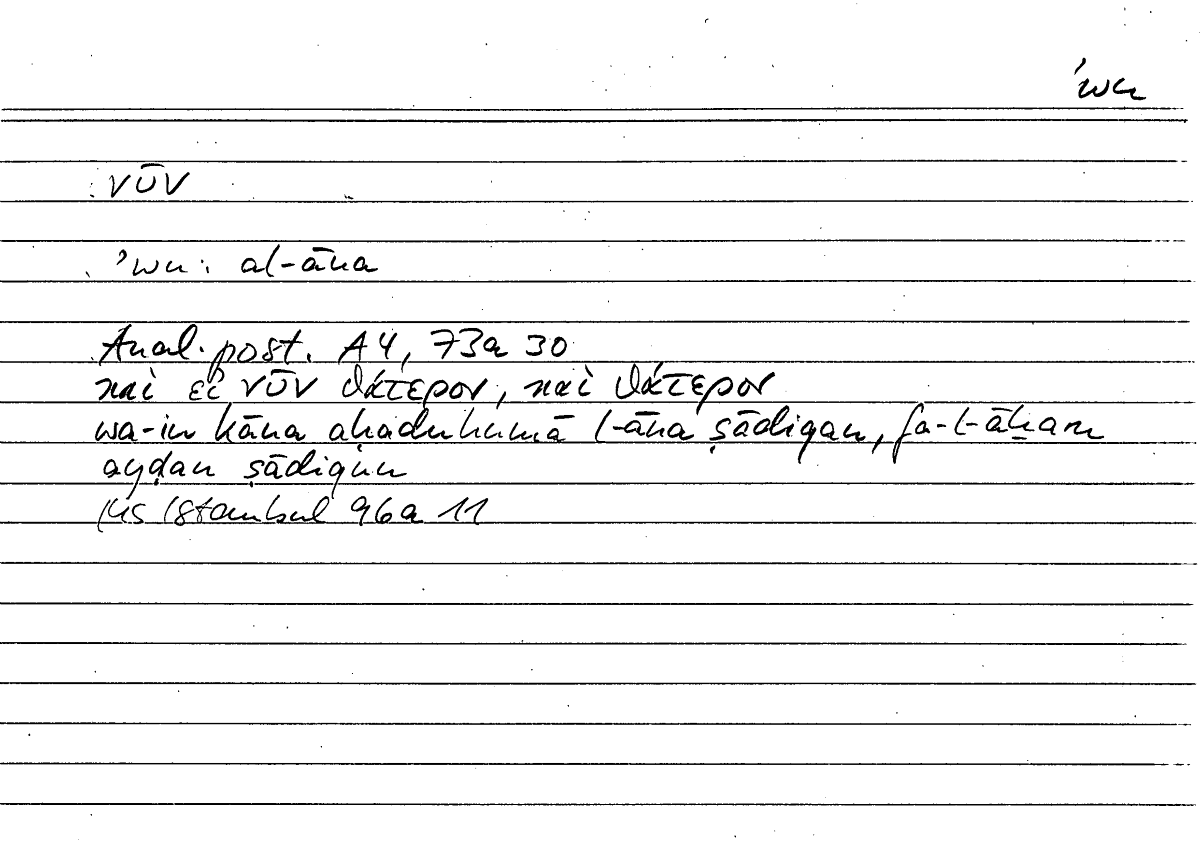 ʾwn
νῦν
ʾwn: al-āna
Anal. post. A4, 73a 30
καὶ εἰ νῦν θάτερον, καὶ θάτερον
wa-in kāna aḥaduhumā l-āna ṣādiqan, fa-l-āḫaru
ayḍan ṣādiqun
Ms Istanbul 96a 11